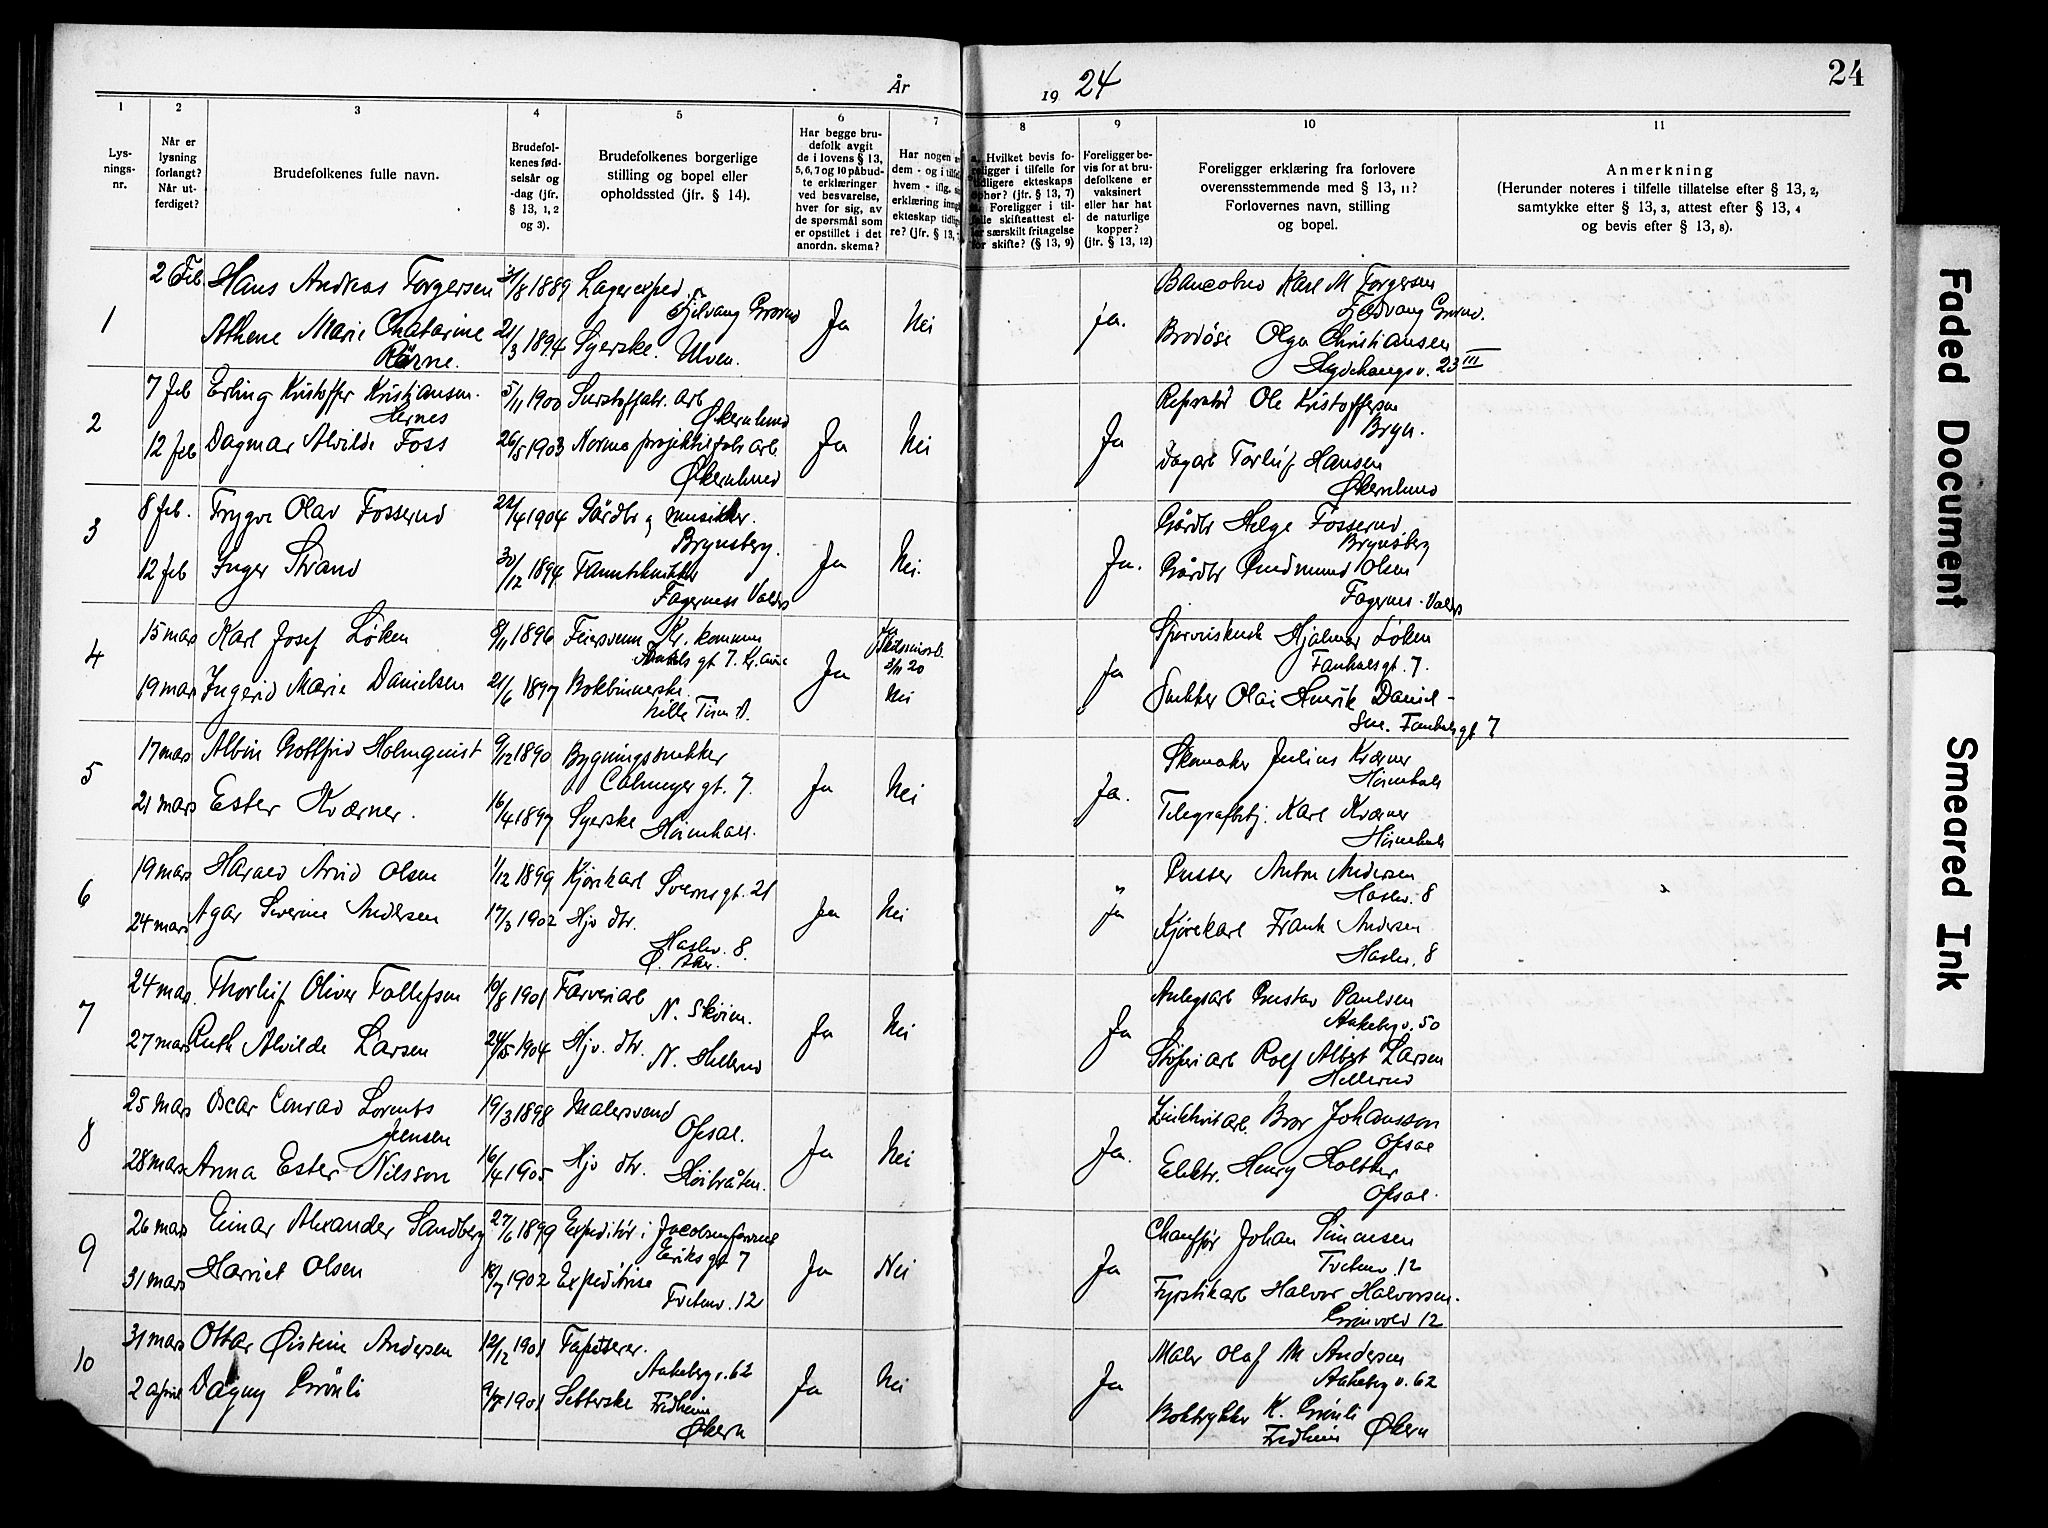 År
19 24
24
1
2
3
4
5
6
7
8
9
10
11
Lys-
nings-
nr.
Når er
lysning
forlangt?
Når ut-
ferdiget?
Brudefolkenes fulle navn.
Brudefol-
kenes fød-
selsår og
-dag (jfr.
§ 13, 1, 2
og 3).
Brudefolkenes borgerlige
stilling og bopel eller
opholdssted (jfr. § 14).
Har begge bru-
defolk avgit
de i lovens § 13,
5, 6, 7 og 10 påbud-
te erklæringer
ved besvarelse,
hver for sig, av
de spørsmål som
er opstillet i det
anordn. skema?
Har nogen
dem - og i
hvem - iflg.
erklæring
ekteskap
re? (jfr. § 13,
Hvilket bevis fo-
religger i tilfelle for
tidligere ekteskaps
ophør? (jfr. § 13, 7)
Foreligger i til-
felle skifteattest el-
ler særskilt fritagelse
for skifte? (§ 13, 9)
Foreligger be-
vis for at bru-
defolkene er
vaksinert
eller har hat
de naturlige
kopper?
(jfr. § 13, 12)
Foreligger erklæring fra forlovere
overensstemmende med § 13, 11?
Forlovernes navn, stilling
og bopel.
Anmerkning
(Herunder noteres i tilfelle tillatelse efter § 13, 2,
samtykke efter § 13, 3, attest efter § 13, 4
og bevis efter § 13, 8).
1
2 Feb. Hans Andreas Torgersen 31/8 1889 Lagerexped.
Athene Marie Chatarine 21/3 1894 Syerske. Ulven.
Ja Nei ja.
Karl M Torgersen
Brodöse Olga Christiansen
23 III
2
7 feb Erling Kristoffer Kristiansen 5/11 1900
Hernes
Økernlund
12 feb Dagmar Alvilde Foss 26/5 1903 Norma projektilfabr arb
Økernlund
Ja Nei Ja
Ole Kristoffersen
Bryn.
Torleif Hansen
Økernlund
3
8 feb. Trygve Olav Fosserud 22/4 1904 Gårdbr og musikker.
Brynsberg.
12 feb Inger Strand 30/12 1894
Fagernes Valdres
Ja Nei. Ja.
Gårdbr Helge Fosserud
Brynsberg
Gårdbr Gudmund Olsen
Fagernes. Valdres
4
15 mars Karl Josef Løken 8/11 1896 Feiersvenn Kr. kommune
gt 7.
19 mars Ingerid Marie Danielsen 21/6 1897 Bokbinnerske.
Ja Nei ja
Hjalmar Løken
gt. 7.
Snekker Olai Henrik Daniel-
sen. gt 7
5
17 mars Albin Gottfrid Holmquist 9/12 1890 Bygningssnekker
Calmeyer gt. 7.
21 mars Ester Kværner. 16/4 1897 Syerske
Ja Nei Ja.
Skomaker Julius Kværner
Telegrafbetj. Karl Kværner
6
19 mars Harald Arvid Olsen 1/12 1899 Kjørekarl Sverres gt. 21
24 mars Agar Severine Andersen 17/3 1902 Hjv dtr.
Haslev. 8.
Ø. Aker.
Ja Nei " ja
Pusser Anton Andersen
Haslev. 8
Kjørekarl Frank Andersen
Haslev. 8
7
24 mars Thorleif Oliver Tollefsen 10/8 1901 Farveriarb
N. Skøien.
27 mars Ruth Alvilde Larsen 24/5 1904 Hjv. dtr.
N. Hellerud
Ja Nei Ja
Anlegsarb Gustav Paulsen
Aakebergv. 50
Støperiarb Rolf Albert Larsen
Hellerud
8
25 mars Oscar Conrad Lorents 19/3 1898 Malersvend
Jensen
Opsal.
28 mars Anna Ester Nilsson 16/4 1905 Hjv dtr. Høibråten.
Ja Nei Ja.
Bror Johansson
Opsal
Elektr. Henry Holther
Opsal.
9
26 mars Einar Alexander Sandberg 27/6 1899 Expeditør i
Eriks gt 7
31 mars Harriet Olsen 18/7 1902 Expeditrise
Tvetenv. 12
Ja Nei Ja
Chauffør Johan Simensen
Tvetenv. 12
Fyrstikarb Halvor Halvorsen.
Grønvold 12
10
31 mars Ottar Øistein Andersen 12/12 1901 Tapetserer.
Aakebergv. 62
2 april Dagny Grønli 1901 Setterske Fredheim
Økern
Ja Nei Ja
Maler Olaf M Andersen
Aakebergv. 62
Boktrykker K. Grønli
Fredheim Økern
Faded Document
Smeared Ink